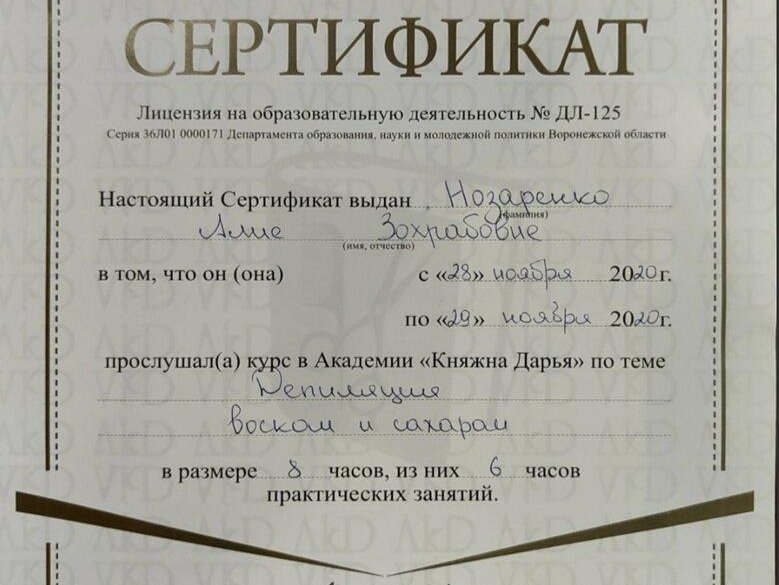 СЕРТИФИКАТ
Лицензия на образовательную деятельность № ДЛ-125
Серия 36Л01 0000171 Департамента образования, науки и молодежной политики Воронежской области
Настоящий Сертификат выдан Нозаренко
(фамилия)
Алие Зохрабовне
(имя, отчество)
в том, что он (она) с «28» ноября 2020 г.
по «29» ноября 2020 г.
прослушал(а) курс в Академии «Княжна Дарья» по теме
Депиляция
воском и сахаром
в размере 8 часов, из них 6 часов
практических занятий.